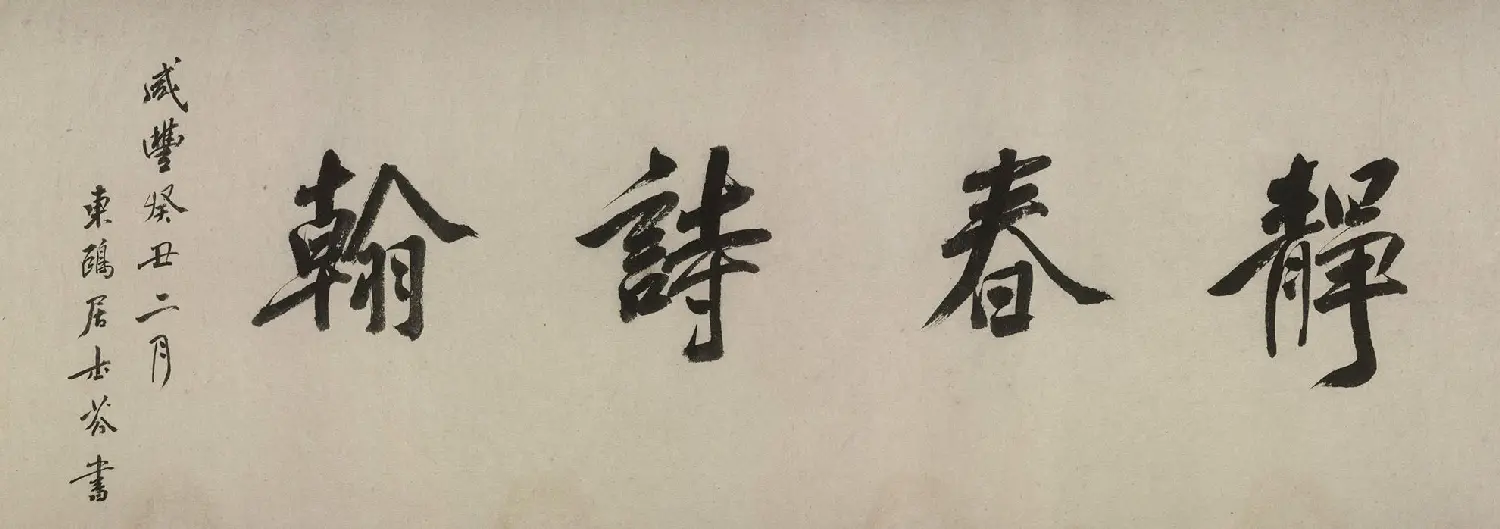 靜春詩翰
咸豐癸丑二月
東鷗居士芬書